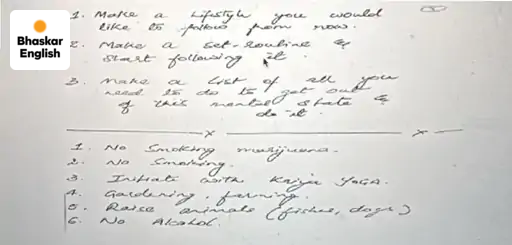 Bhaskar
English
1. Make a Lifestyle you would
like to follow from now.
2. Make a set-routine &
start following it
3. Make a List of all you
need to do to get out
of this mental state &
do it.
1. No Smoking marijuana.
2. No Smoking.
3. Initiate with Kriya YOGA.
4. Gardening, farming.
5. Raise animals (fishes, dogs)
6. No Alcohol.